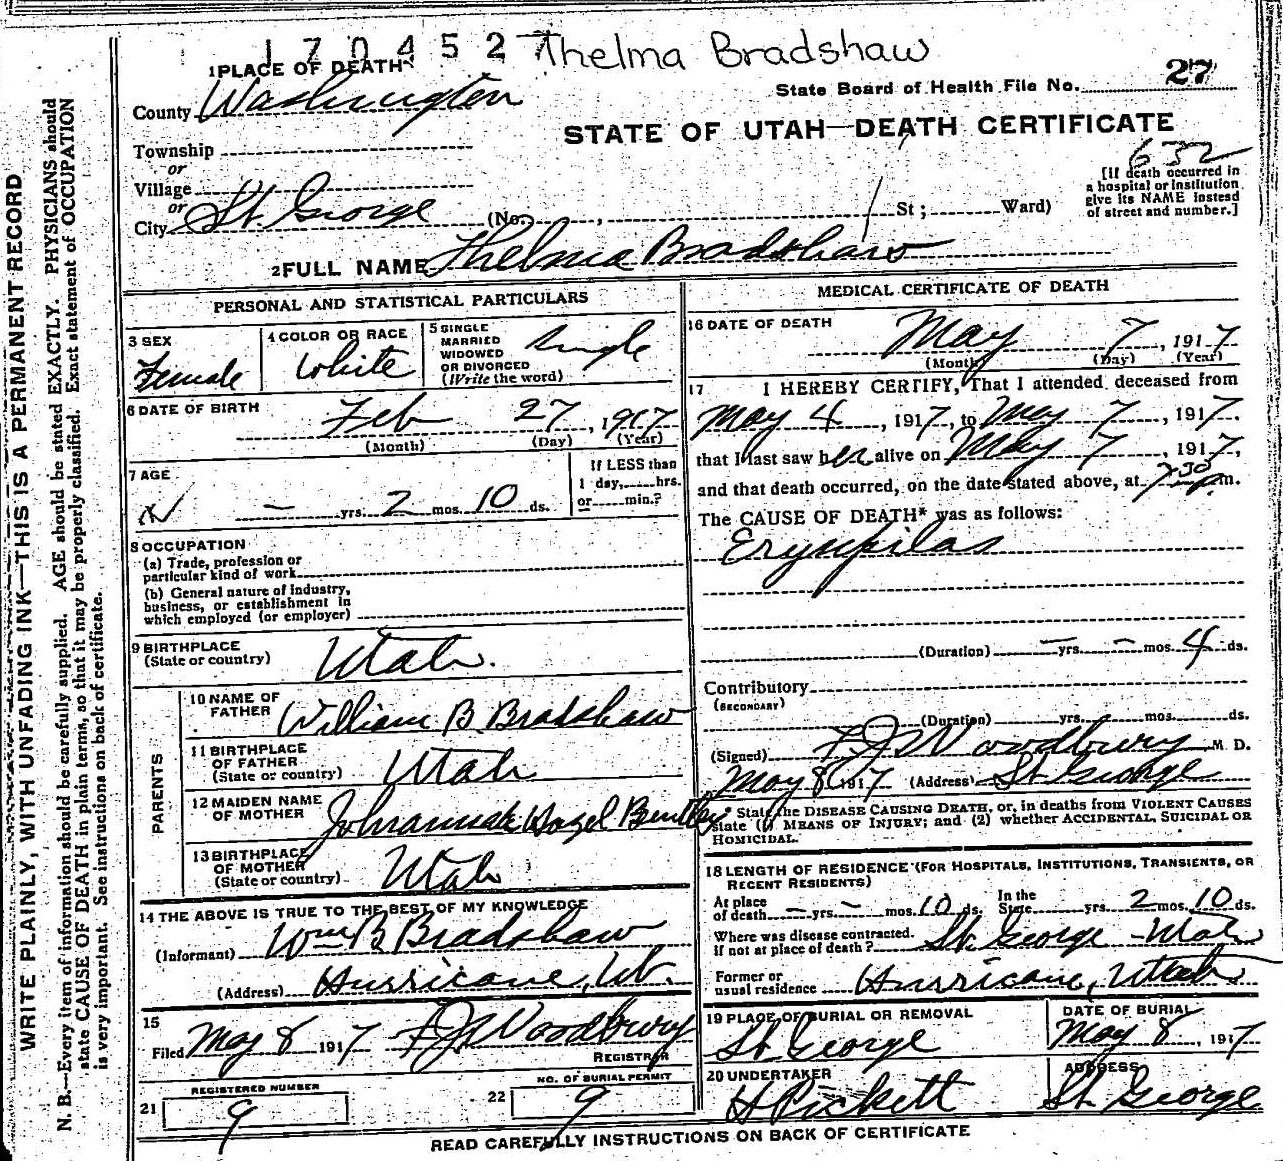 1704527 Thelma Bradshaw
1 PLACE OF DEATH
County Washington
State Board of Health File No. 27
STATE OF UTAH—DEATH CERTIFICATE
632
Township
or
Village
or
City St. George (No. , St ; Ward)
[If death occurred in
a hospital or institution
give its NAME instead
of street and number.]
2 FULL NAME Thelma Bradshaw
PERSONAL AND STATISTICAL PARTICULARS
3 SEX
Female
4 COLOR OR RACE
White
5 SINGLE
MARRIED
WIDOWED
OR DIVORCED
(Write the word)
Single
6 DATE OF BIRTH
Feb 27, 1917
(Month) (Day) (Year)
7 AGE
— yrs. 2 mos. 10 ds.
If LESS than
1 day, hrs.
or min.?
8 OCCUPATION
(a) Trade, profession or
particular kind of work
(b) General nature of industry,
business, or establishment in
which employed (or employer)
9 BIRTHPLACE
(State or country) Utah.
PARENTS
10 NAME OF
FATHER William B. Bradshaw
11 BIRTHPLACE
OF FATHER
(State or country) Utah
12 MAIDEN NAME
OF MOTHER Johannah Hazel Bentley
13 BIRTHPLACE
OF MOTHER
(State or country) Utah
14 THE ABOVE IS TRUE TO THE BEST OF MY KNOWLEDGE
(Informant) Wm B Bradshaw
(Address) Hurricane, Ut.
15
Filed May 8 1917 F J Woodbury
REGISTRAR
REGISTERED NUMBER
21 9
NO. OF BURIAL PERMIT
22 9
MEDICAL CERTIFICATE OF DEATH
16 DATE OF DEATH
May 7, 1917
(Month) (Day) (Year)
17 I HEREBY CERTIFY, That I attended deceased from
May 4, 1917, to May 7, 1917.
that I last saw her alive on May 7, 1917,
and that death occurred, on the date stated above, at 7 30 p m.
The CAUSE OF DEATH* was as follows:
Erysipilas
(Duration) — yrs. — mos. 4 ds.
Contributory
(SECONDARY)
(Duration) yrs. mos. ds.
(Signed) F J Woodbury M. D.
May 8 1917 (Address) St George
* State the DISEASE CAUSING DEATH, or, in deaths from VIOLENT CAUSES
state (1) MEANS OF INJURY; and (2) whether ACCIDENTAL, SUICIDAL OR
HOMICIDAL.
18 LENGTH OF RESIDENCE (FOR HOSPITALS, INSTITUTIONS, TRANSIENTS, OR
RECENT RESIDENTS)
At place In the
of death — yrs. — mos. 10 ds. State yrs. 2 mos. 10 ds.
Where was disease contracted.
if not at place of death? St. George - Utah
Former or
usual residence Hurricane, Utah
19 PLACE OF BURIAL OR REMOVAL
St George
DATE OF BURIAL
May 8, 1917
20 UNDERTAKER
H Pickett
ADDRESS
St. George
READ CAREFULLY INSTRUCTIONS ON BACK OF CERTIFICATE
WRITE PLAINLY, WITH UNFADING INK—THIS IS A PERMANENT RECORD
N. B.—Every item of information should be carefully supplied. AGE should be stated EXACTLY. PHYSICIANS should
state CAUSE OF DEATH in plain terms, so that it may be properly classified. Exact statement of OCCUPATION
is very important. See instructions on back of certificate.